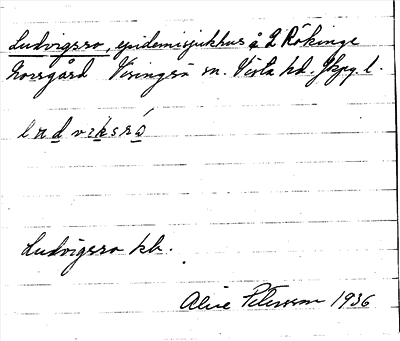 Ludvigsro, epidemisjukhus å 2 Rökinge
Norrgård Visingsö sn. Vista hd. Jkpg. l.
ludviksró
Ludvigsro kb.
Alice Petersson 1936